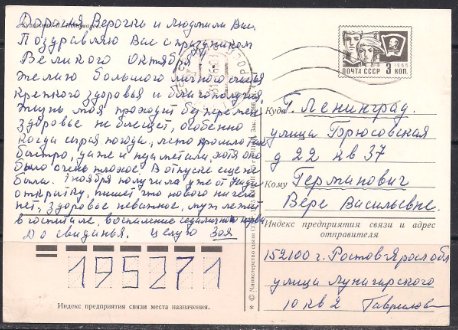 Дорогая Верочка и Людмила Вас.
Поздравляю Вас с праздником
Великого Октября!
Желаю большого личного счастья
крепкого здоровья и благополучия
Жизнь моя проходит без перемен
Здоровье не блещет, особенно
когда сырая погода, лето прошло так
быстро, даже и не заметили, хотя оно
было очень плохое. В отпуске еще не
была. 1 ноября получила уже от Нади
открытку, пишет что нового ничего
нет, здоровье неважное, муж лежит
в госпитале, воспаление седалищн. нерва
До свиданья. Целую Зоя
195271
Индекс предприятия связи места назначения.
© Министерство связи
ПОЧТА СССР 3 КОП.
Куда г. Ленинград.
улица Брюсовская
д 22 кв 37
Кому Германович
Вере Васильевне
Индекс предприятия связи и адрес
отправителя
152100 г. Ростов-Яросл обл
улица Луначарского
10 кв 2 Гаврилова